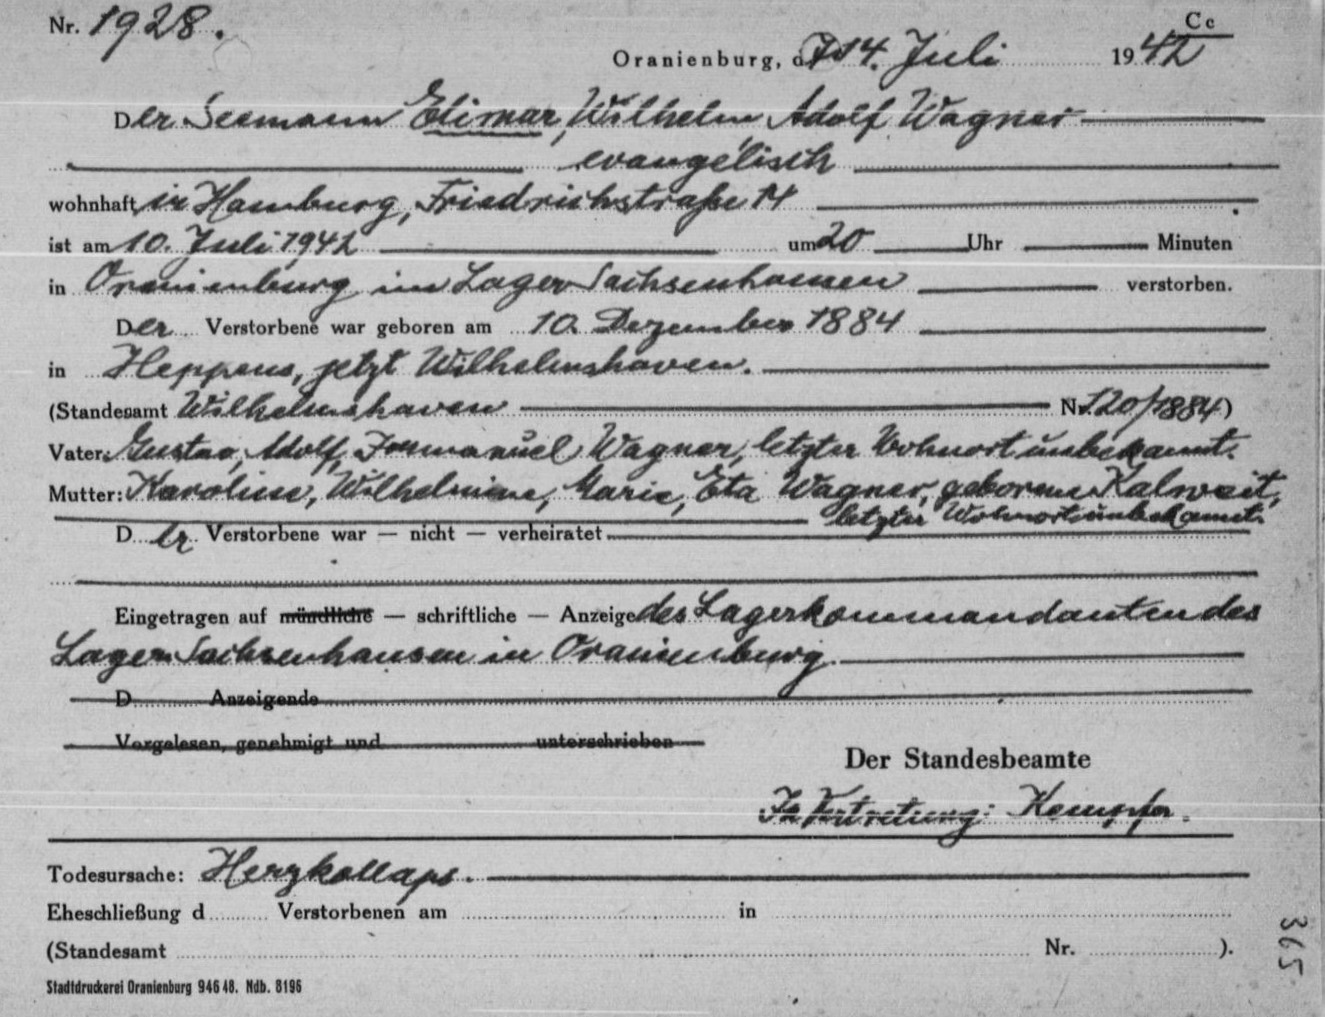 Nr. 1928. Cc
Oranienburg, d 14. Juli 1942
Der Seemann Elimar, Wilhelm Adolf Wagner
evangelisch
wohnhaft in Hamburg, Friedrichstraße 14
ist am 10. Juli 1942 um 20 Uhr Minuten
in Oranienburg im Lager Sachsenhausen verstorben.
Der Verstorbene war geboren am 10. Dezember 1884
in Heppens, jetzt Wilhelmshaven.
(Standesamt Wilhelmshaven Nr. 120/1884)
Vater: Gustav, Adolf, Immanuel Wagner, letzter Wohnort unbekannt.
Mutter: Karoline, Wilhelmine, Marie, Eta Wagner, geborene Kalweit,
letzter Wohnort unbekannt.
Der Verstorbene war — nicht — verheiratet
Eingetragen auf mündliche — schriftliche — Anzeige des Lagerkommandanten des
Lagers Sachsenhausen in Oranienburg.
D Anzeigende
Vorgelesen, genehmigt und unterschrieben
Der Standesbeamte
In Vertretung: Kempfer.
Todesursache: Herzkollaps.
Eheschließung d Verstorbenen am in
(Standesamt Nr. ).
Stadtdruckerei Oranienburg 946 48. Ndb. 8196
365